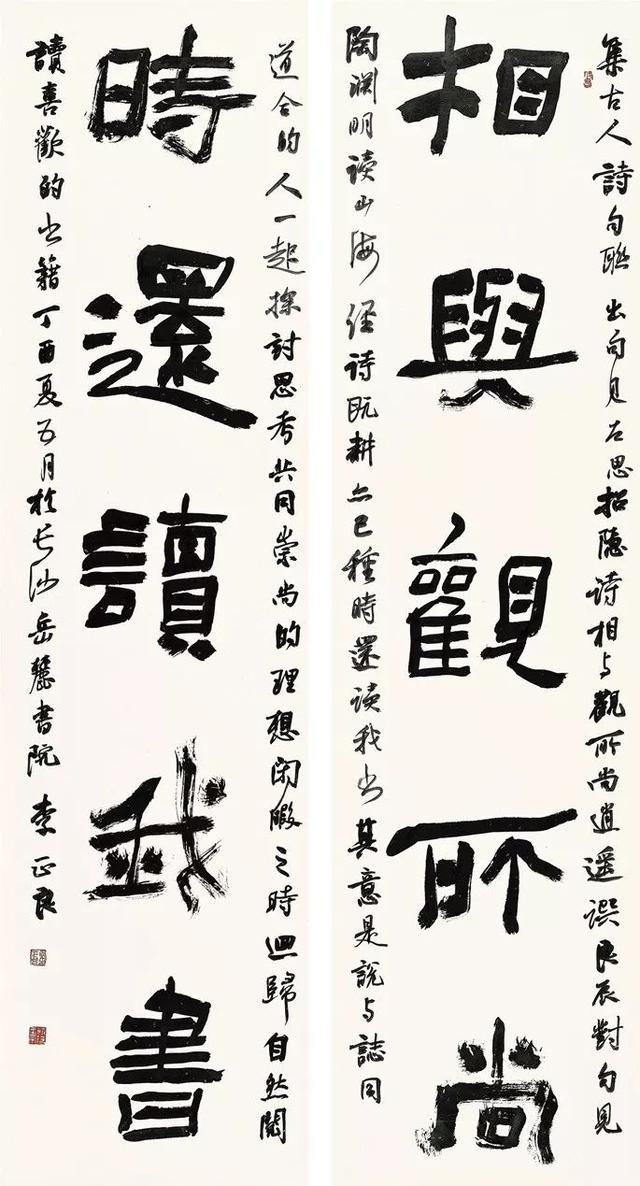 集古人詩句聯出句見左思招隐诗相与觀所尚逍遥撰良辰對句見
相與觀所尚
陶渊明读山海经诗既耕亦已種時還读我书其意是說与誌同
道合的人一起探討思考共同崇尚的理想闲暇之時迴歸自然閱
時還讀我書
讀喜歡的书籍丁酉夏五月於长沙岳麓書院李正良